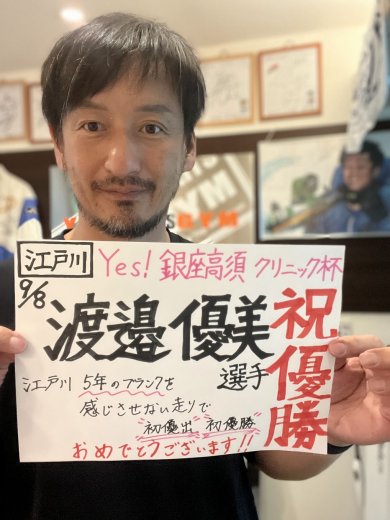 江戸川
Yes! 銀座高須 クリニック杯
9/8
渡邉 優美
選手
祝優勝
江戸川 5年のブランクを
感じさせない走りで
初優出 初優勝
おめでとうございます!!